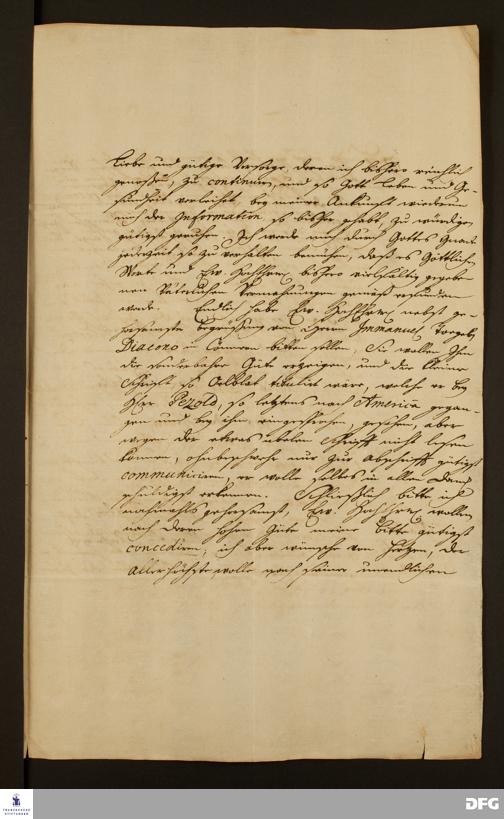 Liebe und gütige Vorsorge, deren ich bißhero reichlich
genoßen, zu continuiren, und so Gott Leben und Ge-
sundheit verleihet, bey meiner Ankunfft wiederum
mich der Information, so bißher gehabt, zu würdigen
gütigst geruhen. Ich werde mich durch Gottes Gnade
jederzeit so zu verhalten bemühen, daß es Göttlichen
Worte und Ew. bißhero vielfältig gegebe-
nen Väterlichen Vermahnungen gemäß erfunden
werde. Endlich habe Ew. nebst ge-
horsamster begrüßung von Herrn Immanuel
Diacono in bitten sollen, Sie wollen Ihm
die sonderbahre Güte erzeigen, und die kleine
Schrifft so Oelblat titulirt wäre, welche er bey
Herr Pezold, so letztens nach America gegan-
gen und bey ihm eingesprochen, gesehen, aber
wegen der etwas üblen Schrifft nicht lesen
können, ohnbeschwehr nur zur abschrifft gütigst
communiciren, er wolle solches in allen Danck
schuldigst erkennen. Schließlich bitte ich
nochmahls gehorsamst, Ew. wollen
nach Deren hohen Güte meine bitte gütigst
concediren, ich aber wünsche von Herzen, der
Allerhöchste wolle nach seiner unendlichen
FRANCKESCHE
STIFTUNGEN
DFG